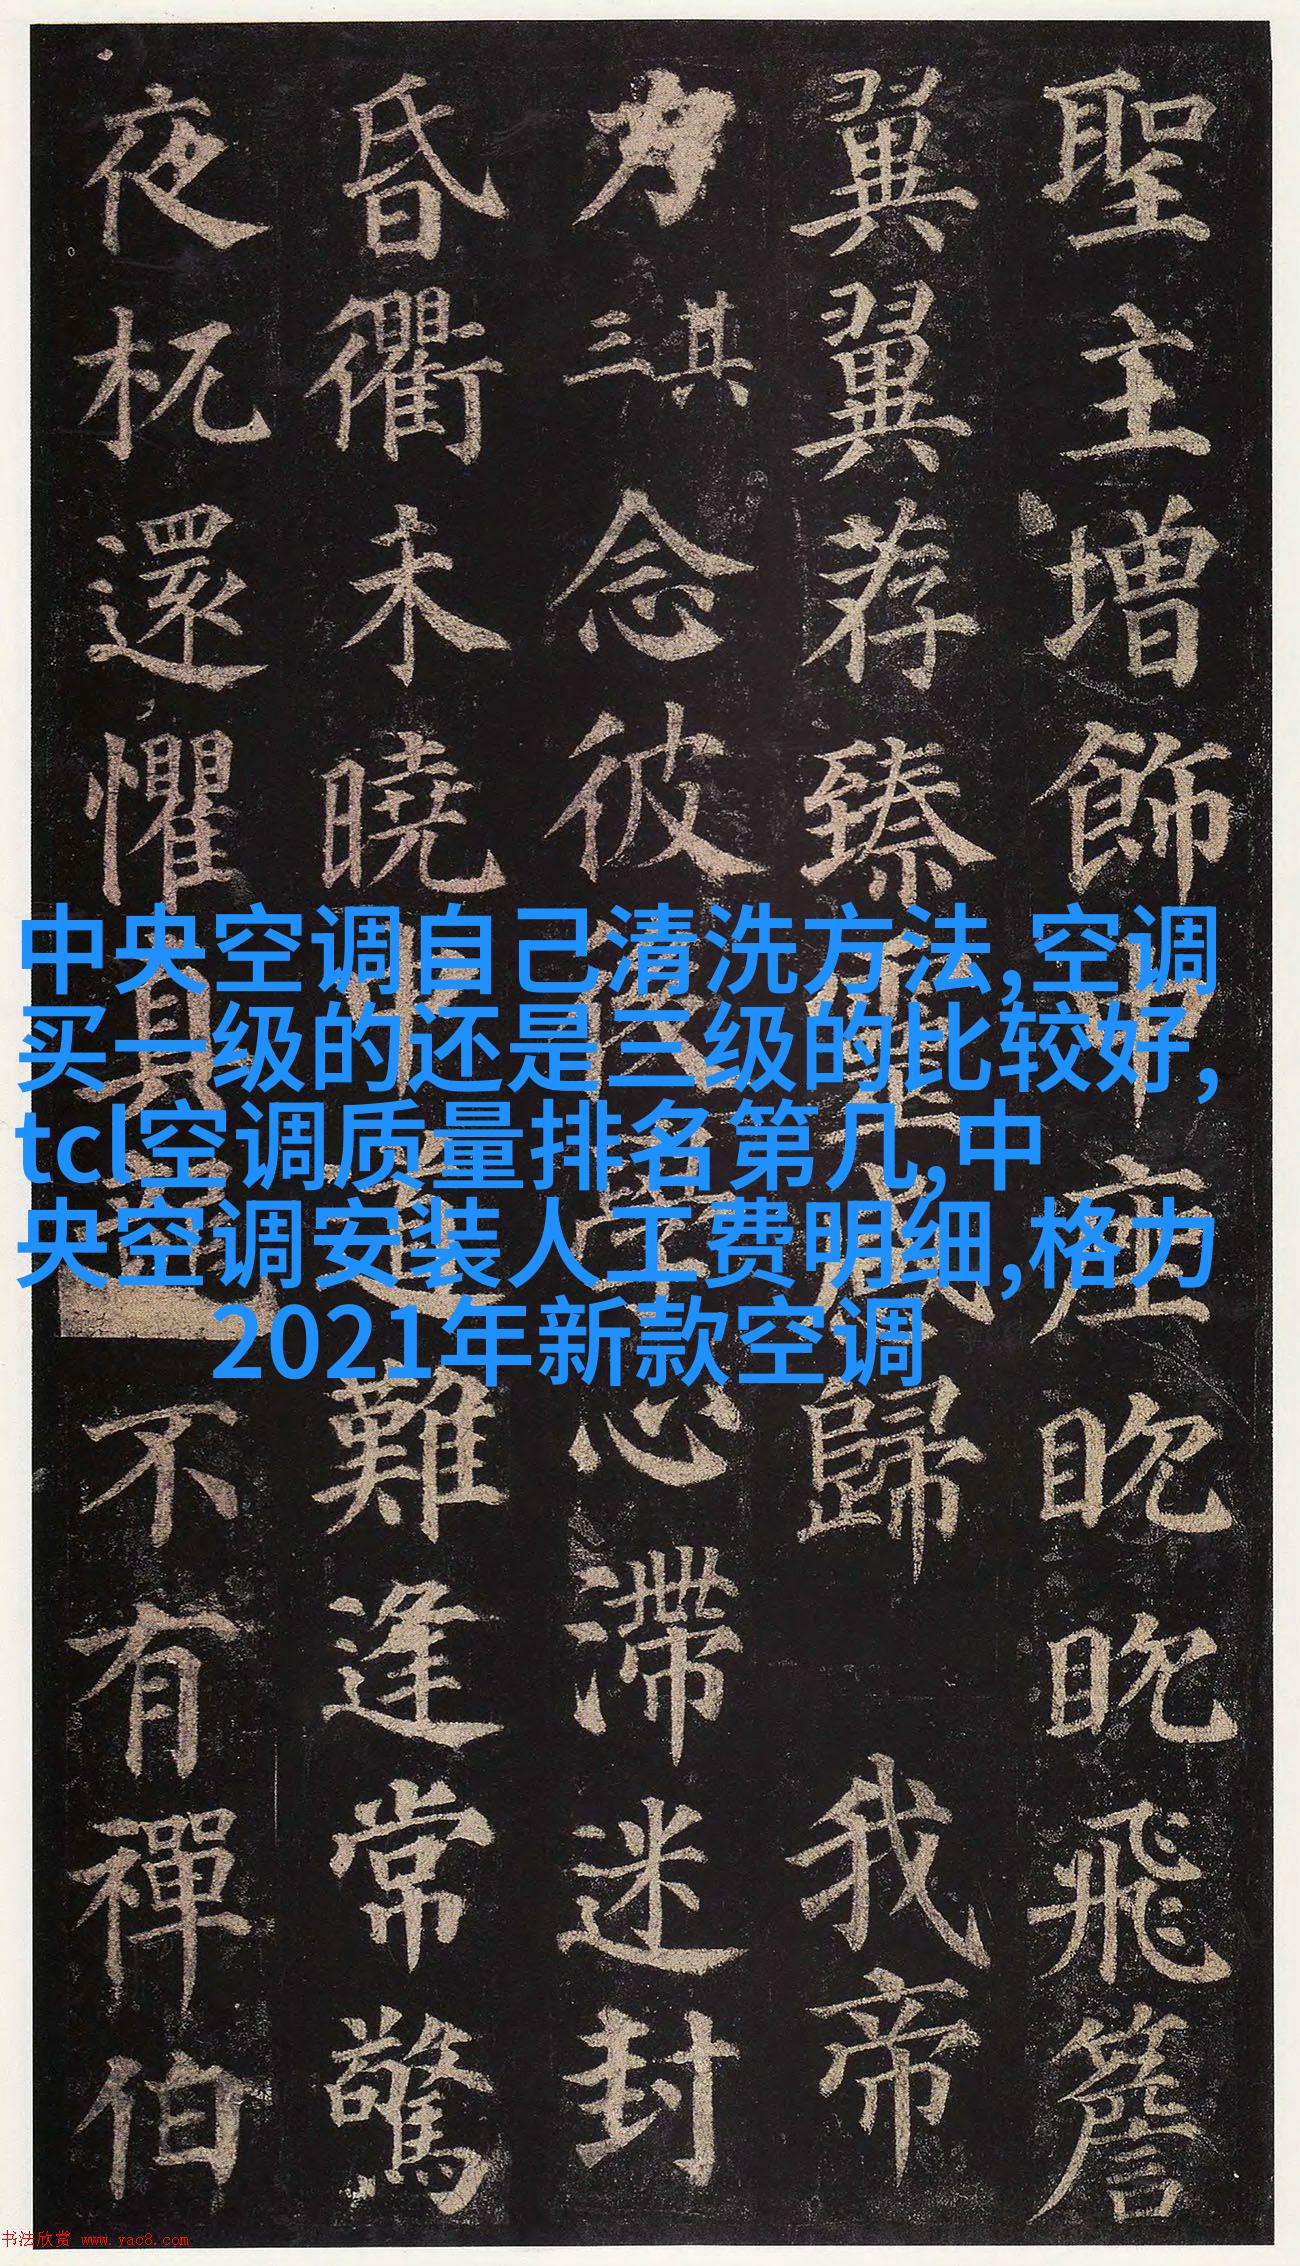 聖主增飾中座眈眈飛簷
翼翼荐臻聖感歸我帝
力其三念彼後學心滯迷封
昏衢未曉中道難逢常驚
夜杌還懼真龍不有禪伯
中央空调自己清洗方法,空调
买一级的还是三级的比较好,
tcl空调质量排名第几,中
央空调安装人工费明细,格力
2021年新款空调
书法欣赏 www.yac8.com